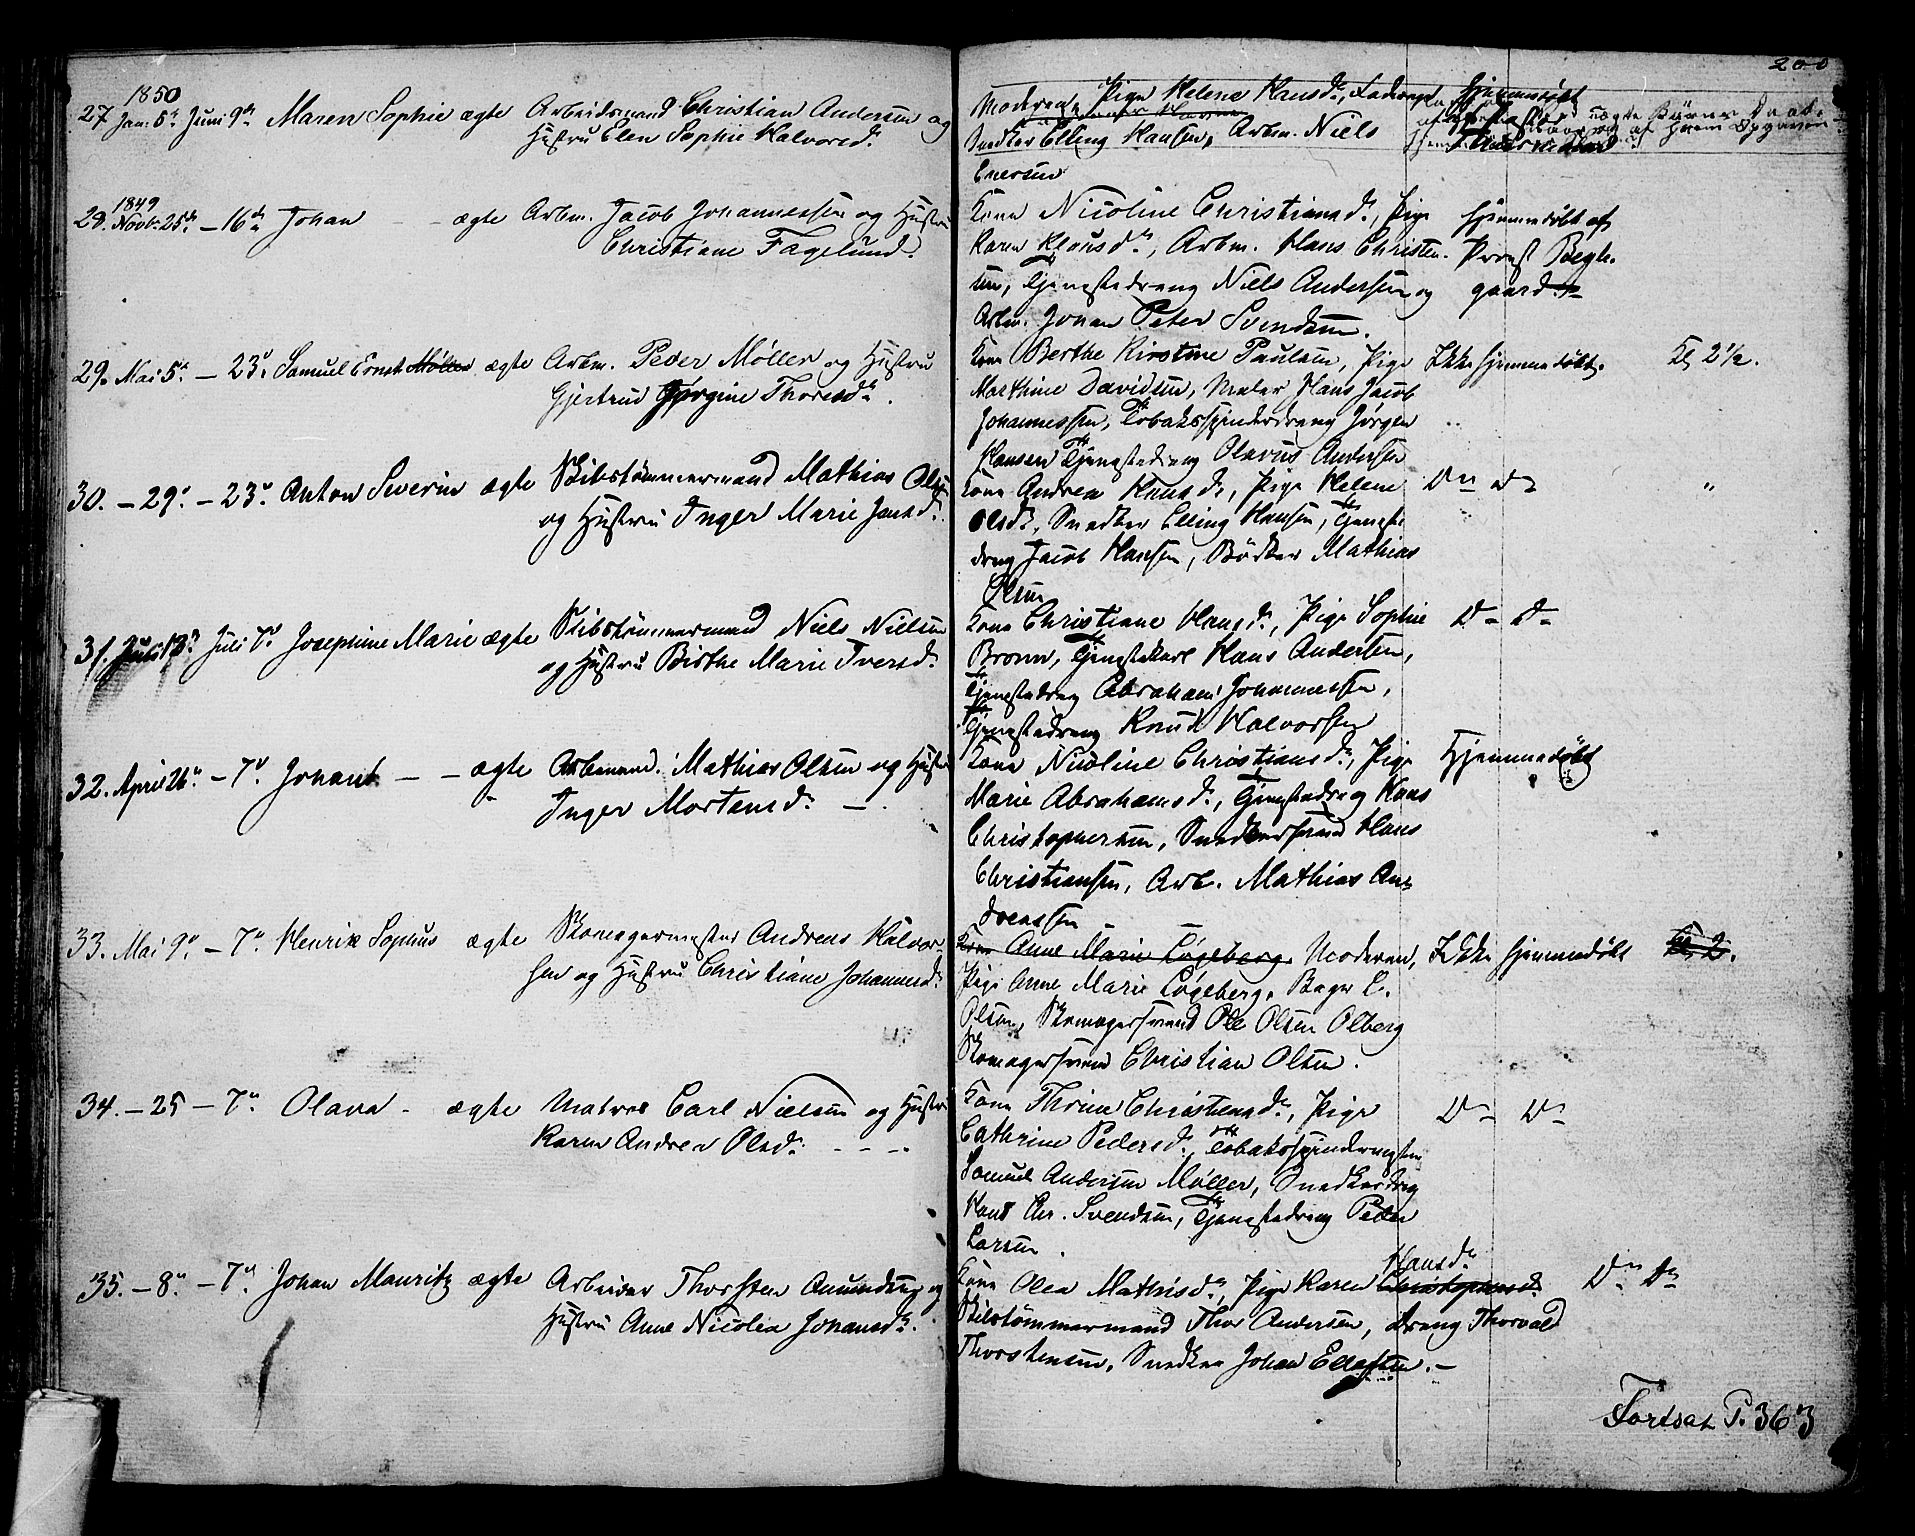 200
1850
27 Jan. 5te Juni 9de Maren Sophie ægte Arbeidsmand Christian Andersen og
Hustru Elen Sophie Halvorsd.
Moderen, Pige Helene Hansd., Faderen,
Snedker Elling Hansen, Arbm. Niels
Enersen
Hjemmedøbt
1849
28. Novb. 25de – 16de Johan – ægte Arbm. Jacob Johannessen og Hustru
Christiane Fagelund.
Kone Nicoline Christiansd., Pige
Karen Klausdr., Arbm. Hans Christen-
sen, Tjenestedreng Niels Andersen og
Arbm. Johan Peter Svendsen.
Hjemmedøbt af
Provst Begh-
gaard.
29. Mai 5te – 23de Samuel Ernst Møller ægte Arbm. Peder Møller og Hustru
Gjertrud Jørgine Thoresdr.
Kone Berthe Kirstine Paulsen, Pige
Marthine Davidsen, Maler Hans Jacob
Johannessen, Tobaksspinderdreng Jørgen
Hansen Tjenestedreng Olavus Andersen
Ikke hjemmedøbt. Kl 2½.
30. – 29de – 23de Anton Severin ægte Skibstømmermand Mathias Olsen
og Hustru Inger Marie Jensd.
Kone Andrea Knusd., Pige Helene
Olsdr., Snedker Elling Hansen, Tjeneste
dreng Jacob Hansen, Bødker Mathias
Olsen
Do Do "
31. Juli 7de Josephine Marie ægte Skibstømmermand Niels Nielsen
og Hustru Birthe Marie Iversd.
Kone Christiane Hansd., Pige Sophie
Bronn, Tjenestekarl Hans Andersen,
Tjenestedreng Abraham Johannessen,
Tjenestedreng Knud Halvorsen
D– D–
32. April 26de – 7de Johan – – ægte Arbmand. Mathias Olsen og Hustru
Inger Mortensdr. –
Kone Nicoline Christiansdr., Pige
Marie Abrahamsdr., Tjenestedreng Hans
Christophersen, Snedkersvend Hans
Christiansen, Arb. Mathias An-
dreassen
Hjemmedøbt
33. Mai 9de – 7de Henrik Sophus ægte Skomagermester Andreas Halvor-
sen og Hustru Christiane Johannesd.
Kone Anne Marie Løgeberg. Moderen,
Pige Anne Marie Løgeberg, Bager L.
Olsen, Skomagersvend Ole Olsen Olberg
Skomagersvend Christian Olsen.
Ikke hjemmedøbt Kl. 2.
34. – 25 – 7de Olava – ægte Matros Carl Nielsen og Hustru
Karen Andrea Olsd. – – –
Kone Thrine Christensdr., Pige
Cathrine Pedersdr. Tobaksspinder
Samuel Andersen Møller, Snedkerdreng
Hans Chr. Svendsen, Tjenestedreng Peder
Larsen.
D– D–
35. – 8de – 7de Johan Mauritz ægte Arbeider Thorsten Amundsen og
Hustru Anne Nicolea Johansdr.
Hansdr.
Kone Olea Mathisdr., Pige Karen Christophersd.
Skibstømmermand Thor Andersen, Dreng Thorvald
Thorstensen, Snedker Johan Ellefsen. –
Do Do
Fortsat P. 363